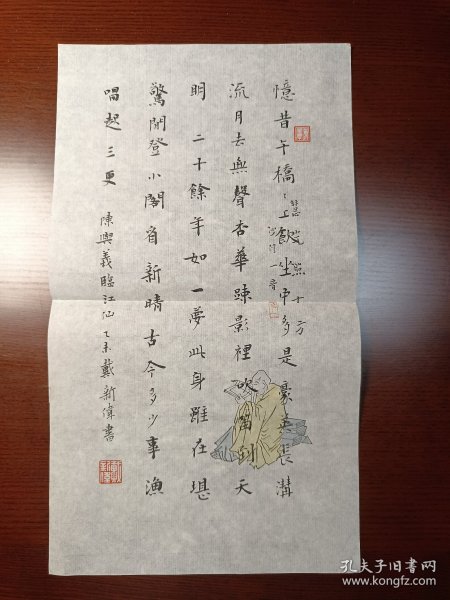 憶昔午橋〻上飲坐中多是豪英長溝
流月去無聲杏華疎影裡吹笛到天
明 二十餘年如一夢此身雖在堪
驚閒登小閣看新晴古今多少事漁
唱起三更 陳與義臨江仙 乙未戴新偉書
照十方
孔夫子旧书网
www.kongfz.com